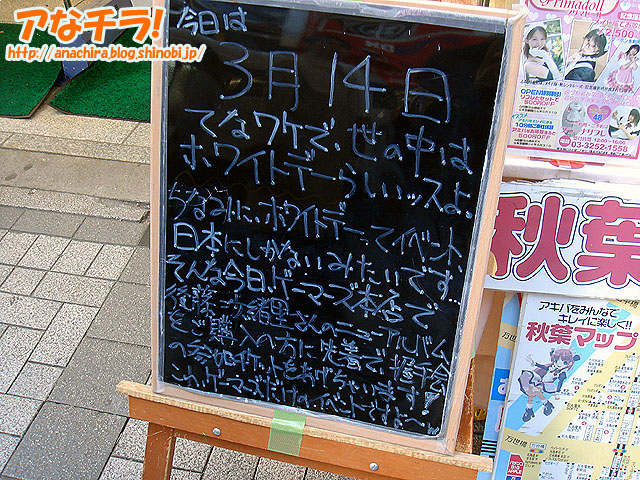 アなチラ!
http://anachira.blog.shinobi.jp/
今日は
3月14日
てなワケで、世の中は
ホワイトデーらしいッスよ。
ちなみに、ホワイトデーってイベント、
日本にしかないみたいです…
そんな今日、ゲーマーズ本店で
後藤 緒里さんのニューアルバム
をご購入の方に先着で握手会
の参加チケットをあげちゃいます!
これがゲーマーズだけのイベントですよ~
Primadoll
¥2,500
OPEN
500円OFF
10分間ご奉仕
500円OFF
48
03-3252-1558
秋葉
アキバをみんなで
キレイに楽しく!!
秋葉マップ
万世橋